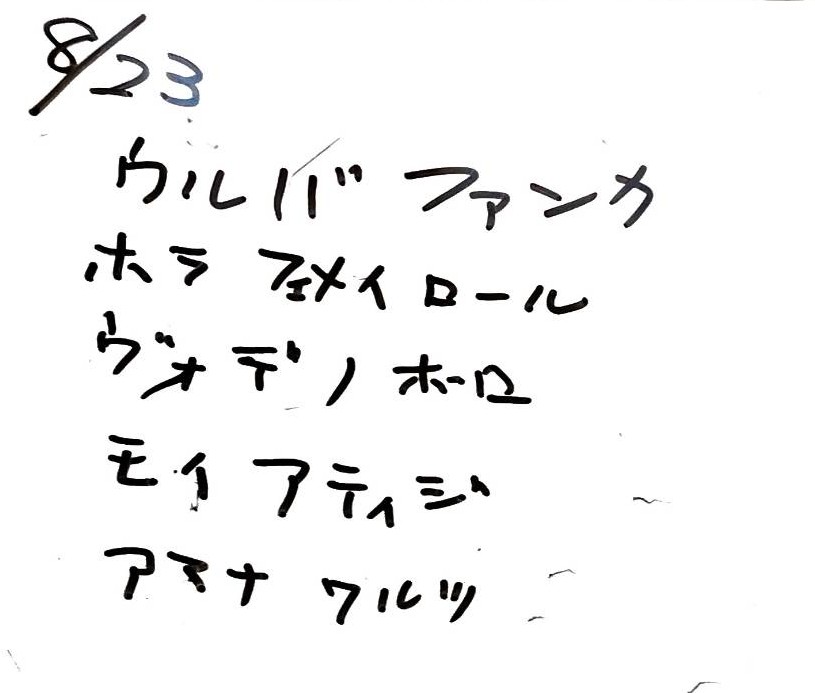 8/23
ウルバ ファンカ
ホラ フェメイロール
ヴォデノホーロ
モイ アティジ
アマナ クルツ